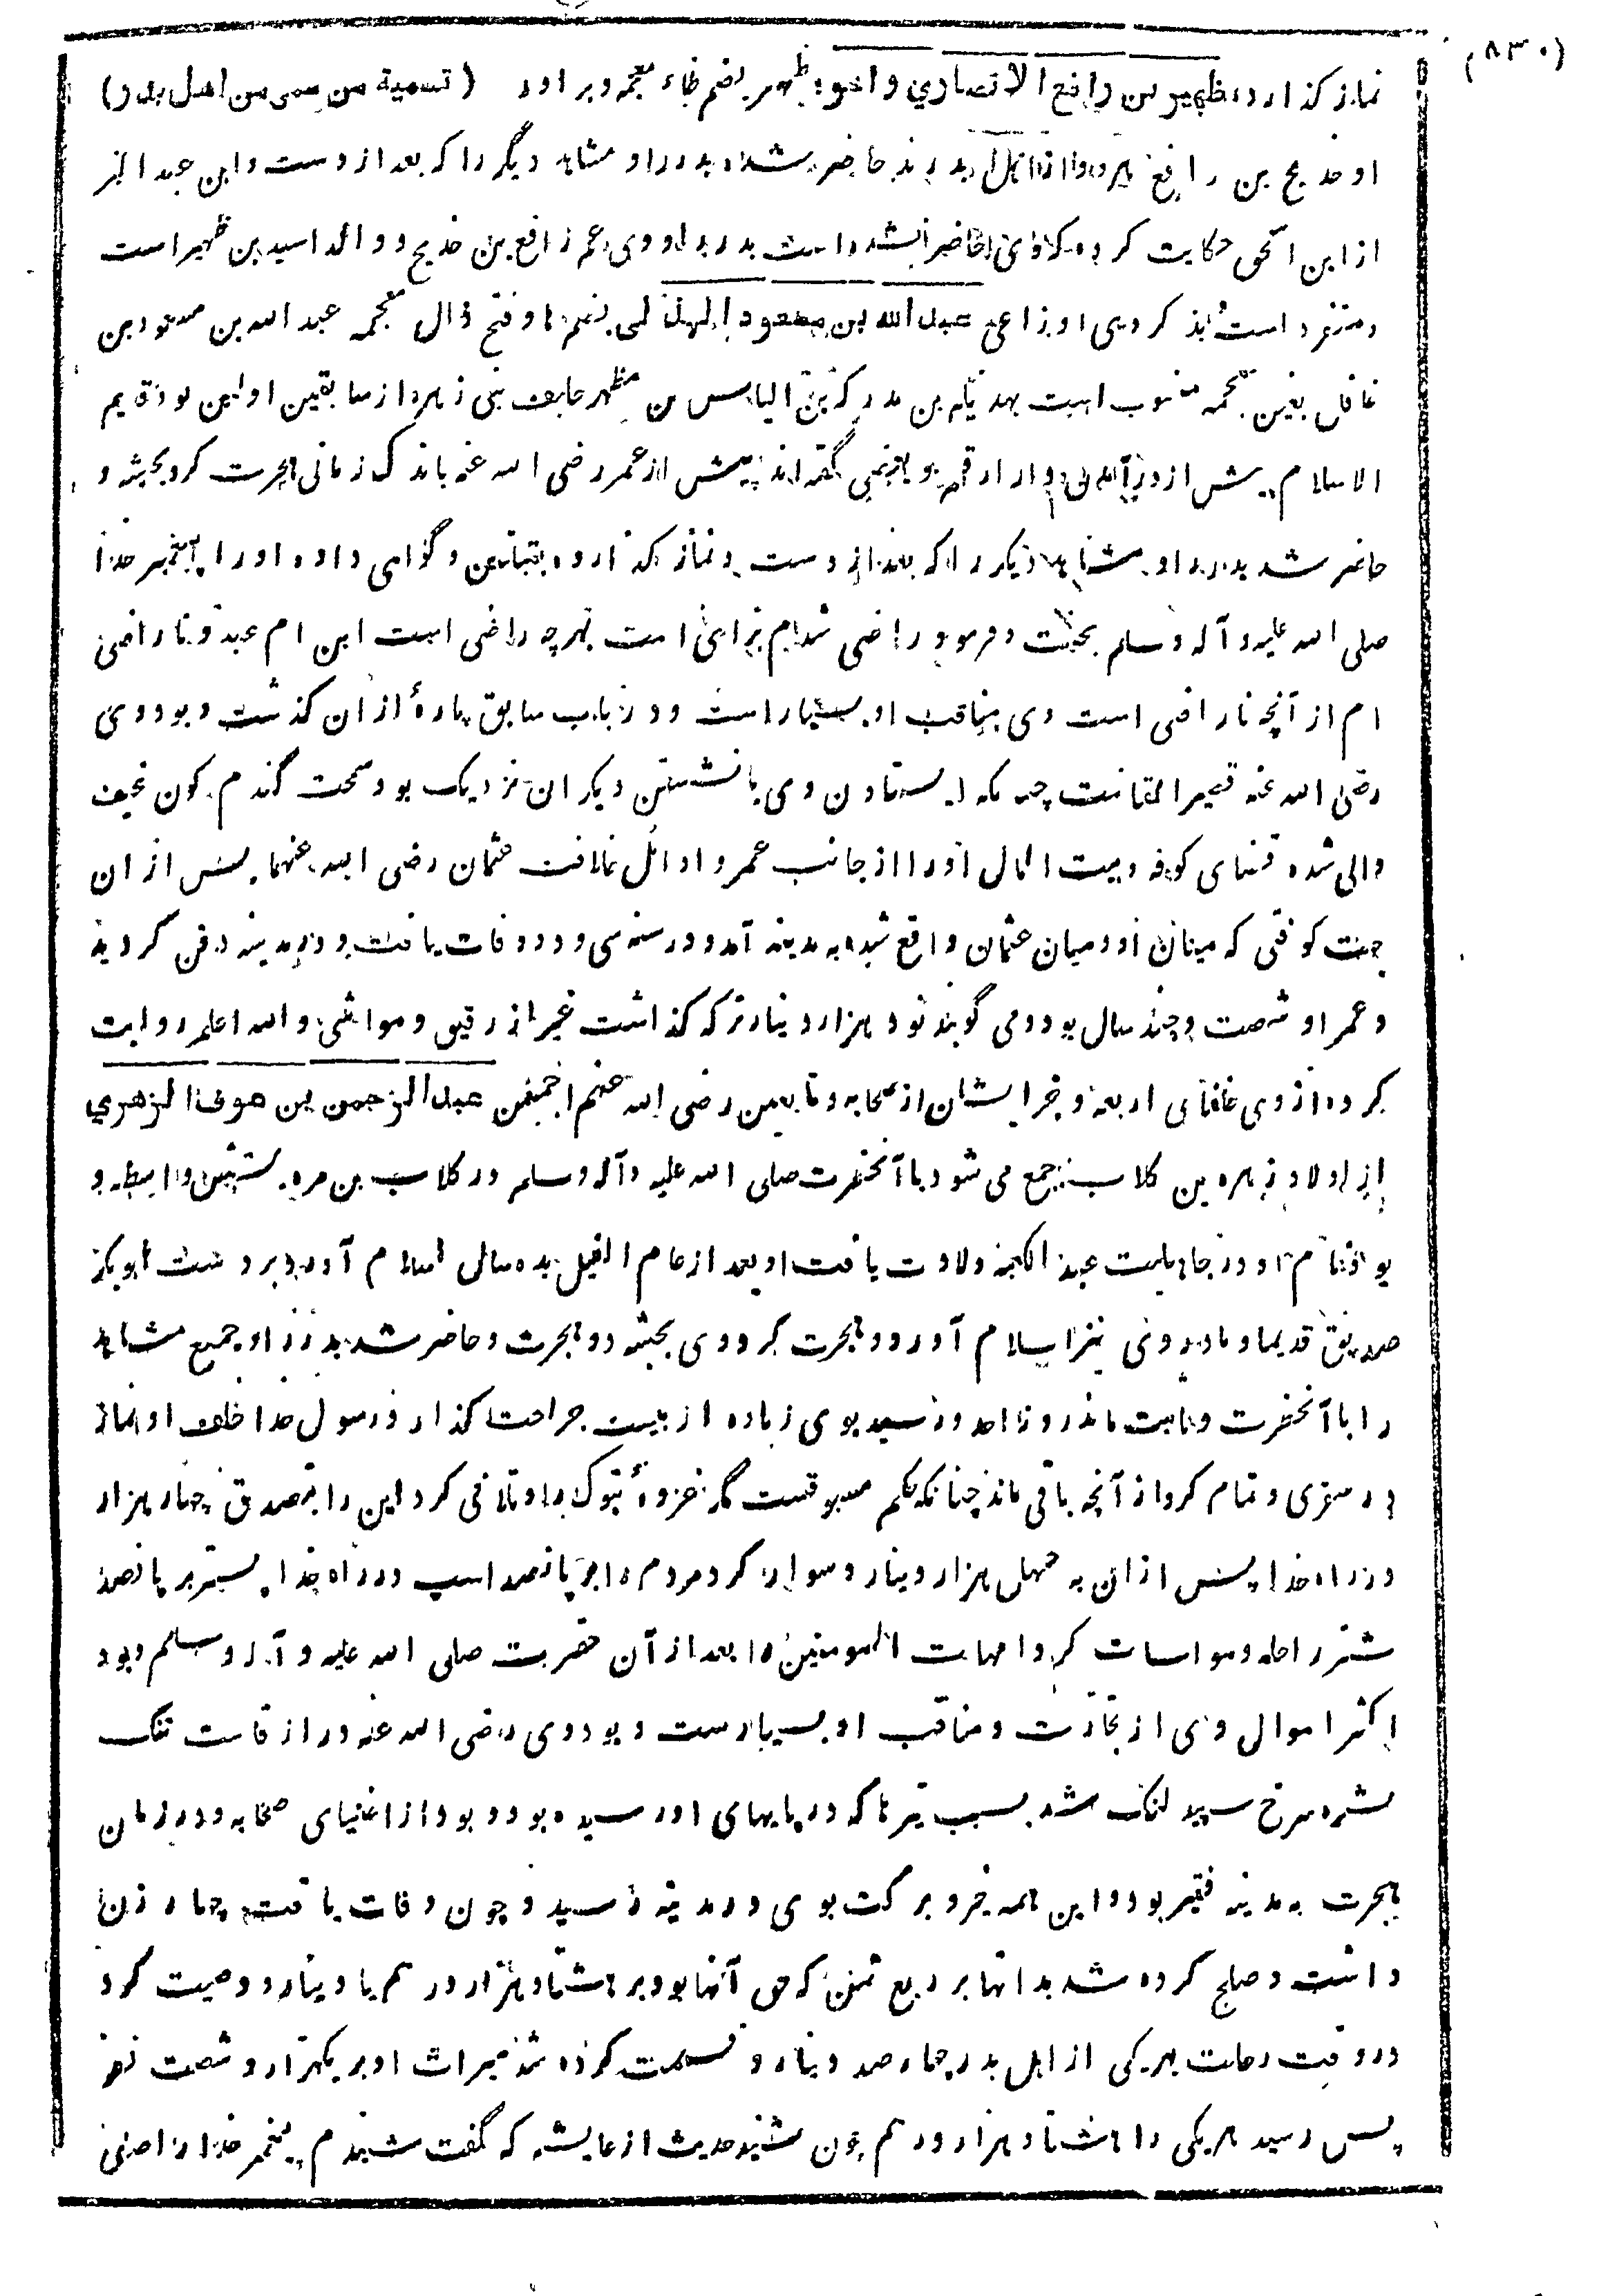 (۸۳۰)
نماز گذارد ظهیر بن رافع الانصاري واخوه ظهیر بضم ظاء معجمه و برادر (تسمیة من سمی من اهل بدر)
او خدیج بن رافع هر دو از اهل بدرند حاضر شده بدر را و مشاهد دیگر را که بعد از وست و ابن عبد البر
از ابن اسحق حکایت کرده که وی حاضر نشده است بدر را و وی عم رافع بن خدیج و والد اسید بن ظهیر است
و متفرد است بذکر وی اوزاعی عبد الله بن مسعود الهذلی بضم ها و فتح ذال معجمه عبد الله بن مسعود بن
غافل بغین معجمه منسوب است بهذیل بن مدرکة بن الیاس بن مضر حلیف بنی زهره از سابقین اولین بود قدیم
الاسلام پیش از در آمدن دار ارقم بود و بعضی گفته‌اند پیش از عمر رضی الله عنه باندک زمانی هجرت کرد بحبشه و
حاضر شد بدر را و مشاهد دیگر را که بعد از وست و نماز گذارده بقبلتین و گواهی داده او را پیغمبر خدا
صلی الله علیه و آله و سلم بجنت و فرمود راضی شدم برای امت بهرچه راضی است ابن ام عبد و ناراضی
ام از آنچه ناراضی است وی مناقب او بسیار است و در باب سابق پارهٔ از ان گذشت و بود وی
رضی الله عنه قصیر القامت چنانکه ایستادن وی با نشستن دیگران نزدیک بود سخت گندم کون نحیف
والی شده قضای کوفه و بیت المال او را از جانب عمر و اوائل خلافت عثمان رضی الله عنهما پس از ان
جهت کوفتی که میان او و میان عثمان واقع شد به مدینه آمد و در سنه سی و دو وفات یافت و در مدینه دفن گردید
و عمر او شصت و چند سال بود و می گویند نود هزار دینار ترکه گذاشت غیر از رقیق و مواشی و الله اعلم روایت
کرده از وی خلفای اربعه و غیر ایشان از صحابه و تابعین رضی الله عنهم اجمعین عبد الرحمن بن عوف الزهري
از اولاد زهره بن کلاب جمع می شود با آنحضرت صلی الله علیه و آله و سلم در کلاب بن مره بشش واسطه و
بود نام او در جاهلیت عبد الکعبه ولادت یافت او بعد از عام الفیل بده سالی اسلام آورد بر دست ابو بکر
صدیق قدیما و مادر وی نیز اسلام آورد و هجرت کرد وی بحبشه دو هجرت و حاضر شد بدر را و جمیع مشاهد
را با آنحضرت و ثابت ماند روز احد و رسید بوی زیاده از بیست جراحت گذارد رسول خدا خلف او نماز
در سفری و تمام کرد از آنچه باقی ماند چنانکه حکم مسبوقست گم غزوهٔ تبوک را و تلافی کرد این را بتصدق چهار هزار
در راه خدا پس از ان به چهل هزار دینار و سوار کرد مردم را بر پانصد اسپ در راه خدا پستر بر پانصد
شتر راحله و مواسات کرد امهات المومنین را بعد از آن حضرت صلی الله علیه و آله و سلم و بود
اکثر اموال وی از تجارت و مناقب او بسیارست و بود وی رضی الله عنه دراز قامت تنک
بشره سرخ سپید لنگ شد بسبب تیرها که در پایهای او رسیده بود و بود از اغنیای صحابه و در زمان
هجرت به مدینه فقیر بود و این همه خیر و برکت بوی در مدینه رسید و چون وفات یافت چهار زن
داشت و صلح کرده شد بدانها بر ربع ثمن که حق آنها بود بر هشتاد هزار درهم یا دینار و وصیت کرد
در وقت رحلت بهر یکی از اهل بدر چهار صد دینار و قسمت کرده شد میراث او بر یکهزار و شصت نفر
پس رسید هر یکی را هشتاد هزار درهم چون شنید حدیث از عایشه که گفت شنیدم پیغمبر خدا را صلی